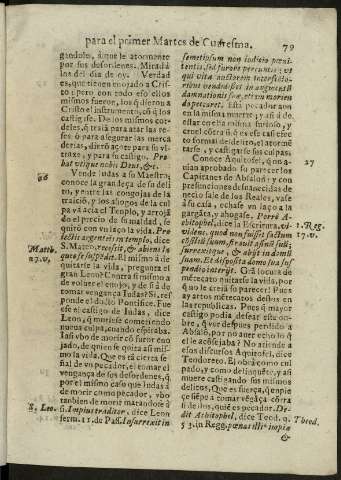 para el primer Martes de Cuaresma. 79
gandolo, a que le atormente
por sus desordenes. Mirad a
los del dia de oy. Verdad
es, que tienen enojado a Cris-
to, pero con todo eso ellos
mismos fueron, los q̃ dierõ a
Cristo el instrumento, cõ q̃ los
castigase. De los mismos cor-
deles, q̃ traiã para atar las re-
ses o para asegurar las merca-
derias, diero açote para su vl-
traxe, y para su castigo. Pro-
bat vtique nobis Deus, &c.
66
Vende Iudas a su Maestro,
conoce la grandeza de su deli-
to, y entre las congojas de la
traiciõ, y los ahogos de la cul
pa va acia el Templo, arrojò
el precio de su maldad, se qui-
tò con vn laço la vida. Pro-
iectis argenteis in templo, dice
S. Mateo, recessit, & abiens la
queo se suspẽdit.
Matth.
27. v.
El mismo â de
quitarse la vida, pregunta el
gran Leon? Contra si mismo a
de volver el enojo, y de si â de
tomar vengança Iudas? Si, res-
ponde el docto Pontifice. Fue
ese el castigo de Iudas, dice
Leon, q̃ muriese cometiendo
nueva culpa, cuando espiraba.
Ias vbo de morir cõ furor eno
jado, de quien se quita asi mis-
mo la vida. Que es tã cierta se-
ñal de vn pecador, el tomar el
vengança de sus desordenes, q̃
por el mismo caso que Iudas â
de morir como pecador, vbo
tambien de morir matandose â
S. Leo.
si. Impius traditor, dice Leon
serm. 11. de Pas. In furrexit in
semetipsum non iudicio pœni-
tentis, sed furore pereuntis; vt
qui vitæ auctorem interfecto-
ribus vendidisset in augmentũ
damnationis suæ, etiam moriens
peccaret. Està pecador aun
en la misma muerte? asi â de
estar en ella misma furioso, y
cruel cõtra si q̃ es ese cas cier-
to forma del delito, el atormẽ
tarse, y castigarse sus culpas.
27
Conoce Aquitofel, q̃ no a-
uian aprobado su parecer los
Capitanes de Absalõ: y con
presunciones desauciadas de ne
cio sale de los Reales, vase
a su casa, echase vn laço a la
gargãta, y ahogase. Porrò A-
chitophel, dice la Escritura, vi-
vidẽs, quod non fuisset factum
consiliũ suum, strauit asinũ suũ;
surrexitque, & abijt in domũ
suam. Et disposita domo sua sus
pendio interijt.
2. Reg.
17. v.
Grã locura de
mercader quitarse la vida, por
que no le creiã su parecer! Pues
ay artes mercaderos desos en
las republicas. Pues q̃ mayor
castigo podia desear este on-
bre, q̃ ver despues perdido a
Absalõ, por no auer echo lo q̃
el le acõsejaba? No atiende a
esos discursos Aquitofel, dice
Teodoreto. El obrá como cul
pado, y como delinquẽte, y asi
muere castigando sus mismos
delitos, Que es fuerça, q̃ impie
ce sepa a tomar vengãça cõtra
si de ibus, quiẽ es pecador. De-
dit Achitophel, dice Teod. q.
Theod.
53. in Regg. pœnas illi⁹ inopia
&